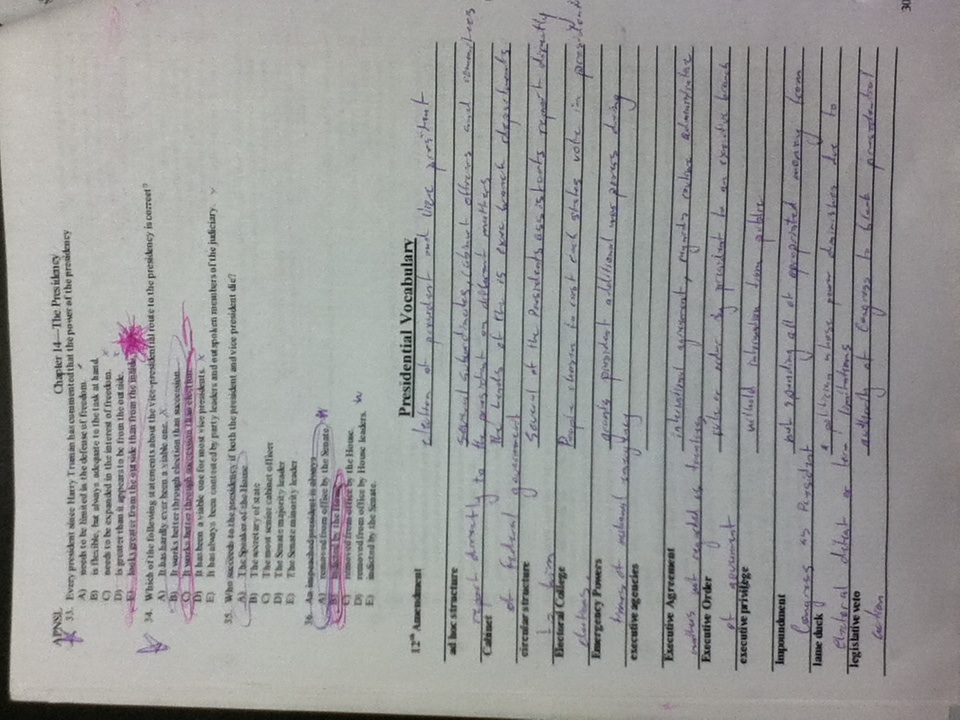 APNSL
Chapter 14—The Presidency
33. Every president since Harry Truman has commented that the power of the presidency
A) needs to be limited in the defense of freedom.
B) is flexible, but always adequate to the task at hand.
C) needs to be expanded in the interest of freedom.
D) is greater than it appears to be from the outside.
E) looks greater from the outside than from the inside.
34. Which of the following statements about the vice-presidential route to the presidency is correct?
A) It has hardly ever been a viable one.
B) It works better through election than succession.
C) It works better through succession than election.
D) It has been a viable one for most vice presidents.
E) It has always been contested by party leaders and outspoken members of the judiciary.
35. Who succeeds to the presidency if both the president and vice president die?
A) The Speaker of the House
B) The secretary of state
C) The most senior cabinet officer
D) The Senate majority leader
E) The Senate minority leader
36. An impeached president is always
A) removed from office by the Senate.
B) indicted by the House.
C) removed from office by the House.
D) removed from office by House leaders.
E) indicted by the Senate.
Presidential Vocabulary
12th Amendment election of president and vice president
ad hoc structure several subordinates, cabinet officers and committees
report directly to the president on different matters
Cabinet The heads of the 15 exec branch departments
of federal government
circular structure Several of the Presidents assistants report directly
to him
Electoral College People chosen to cast each states vote in president
elections.
Emergency Powers grants president additional powers during
times of national emergency
executive agencies
Executive Agreement international agreement, regards routine administrative
matters not regarded as treaties
Executive Order rule or order by president to an executive branch
of government
executive privilege withold information from public
Impoundment not spending all of apropriated money from
Congress as President
lame duck a politician whose power diminishes due to
electoral defeat or term limitations
legislative veto authority of Congress to block presidential
action
30